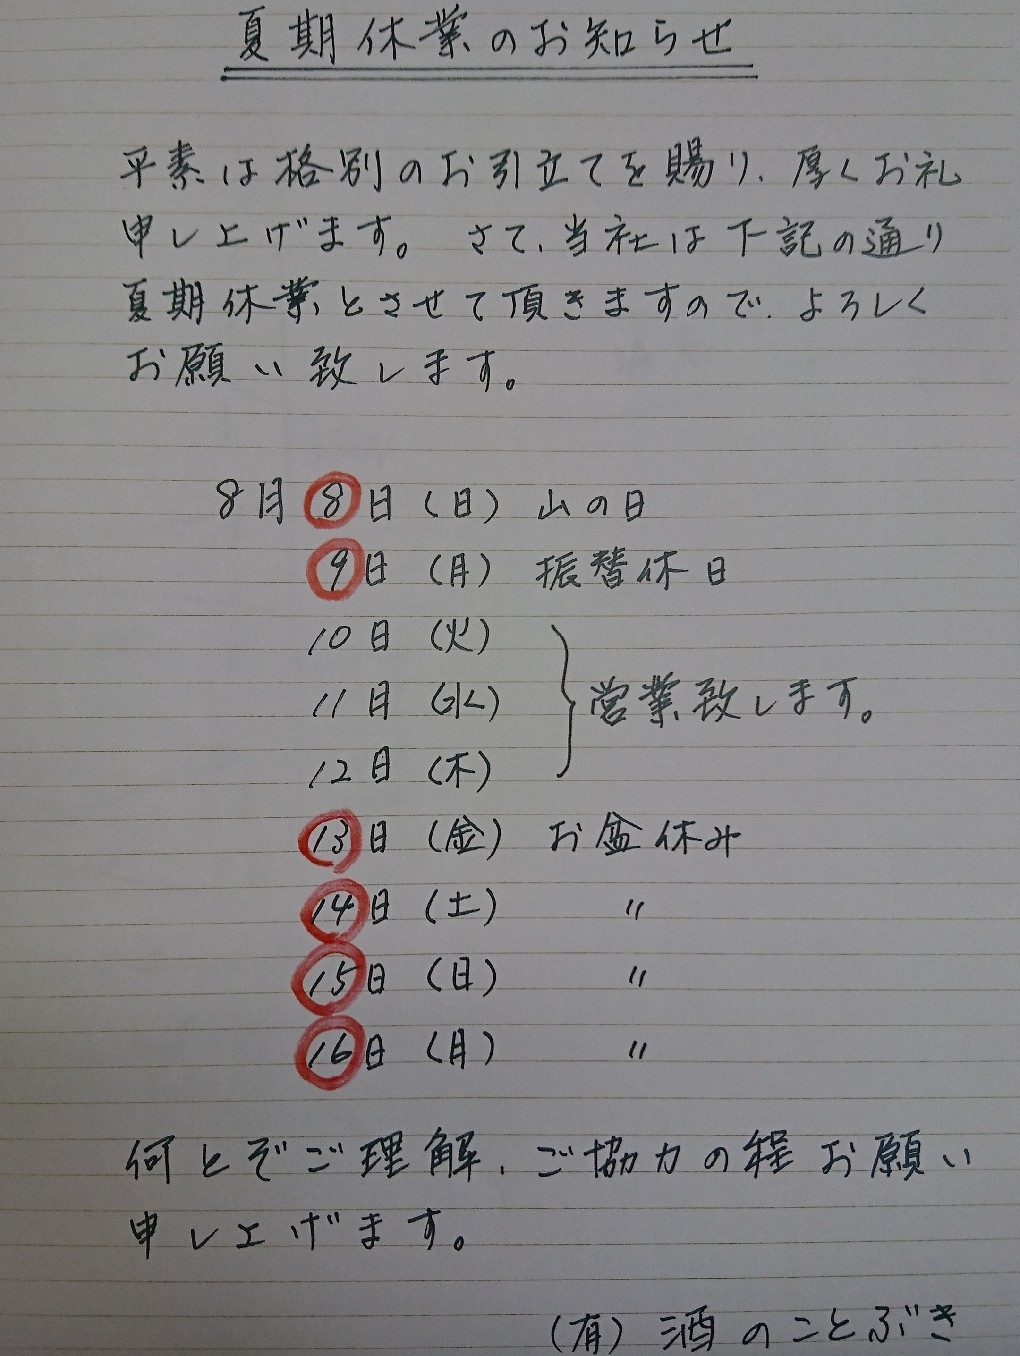 夏期休業のお知らせ
平素は格別のお引立てを賜り、厚くお礼
申し上げます。さて、当社は下記の通り
夏期休業とさせて頂きますので、よろしく
お願い致します。
8月8日(日) 山の日
9日(月) 振替休日
10日(火)
11日(水) 営業致します。
12日(木)
13日(金) お盆休み
14日(土) 〃
15日(日) 〃
16日(月) 〃
何とぞご理解、ご協力の程お願い
申し上げます。
(有)酒のことぶき